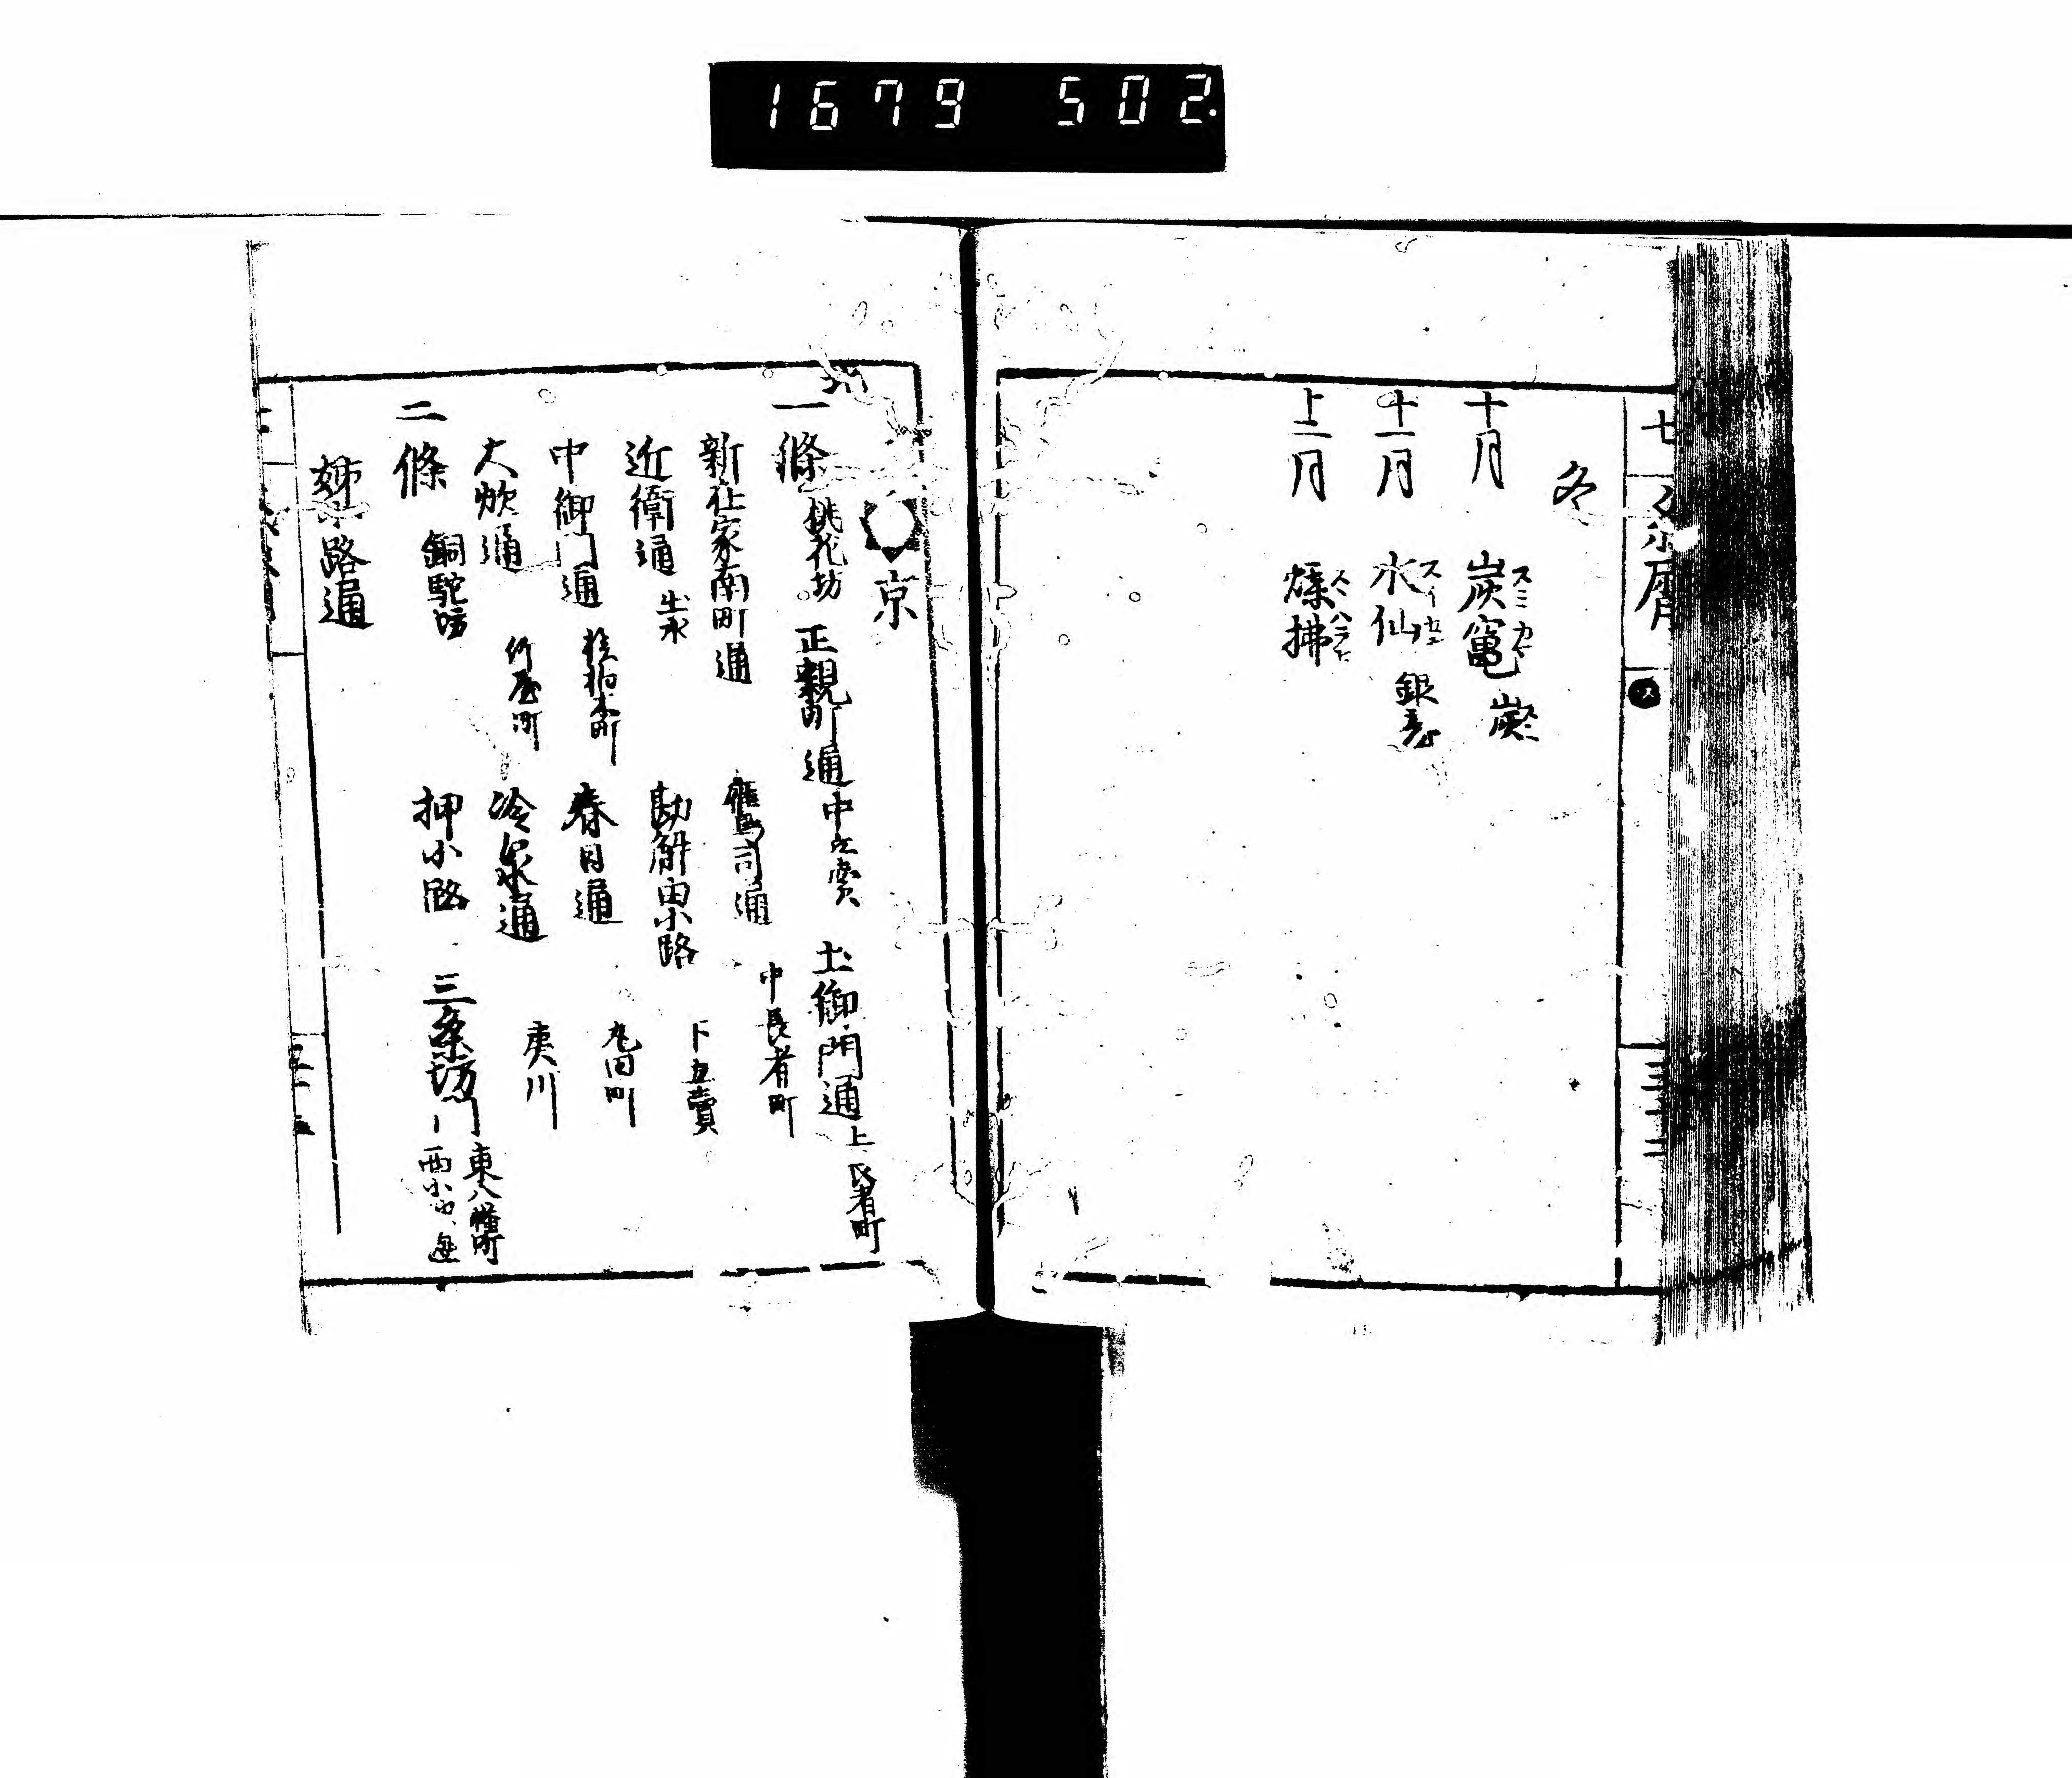 1679 502.
冬
十月 炭竈 スミカマ 炭 スミ
十一月 水仙 銀臺
十二月 煤拂 スヽハラヒ
三十二
京
一條 桃花坊 正親町通 中立賣 土御門通 上長者町
新在家南町通 鷹司通 中長者町
近衛通 出水 勘解由小路 下立賣
中御門通 椹木町 春日通 丸田町
大炊通 竹屋町 冷泉通 夷川
二條 銅駝坊 押小路 三条坊門 東八幡町
姉小路通